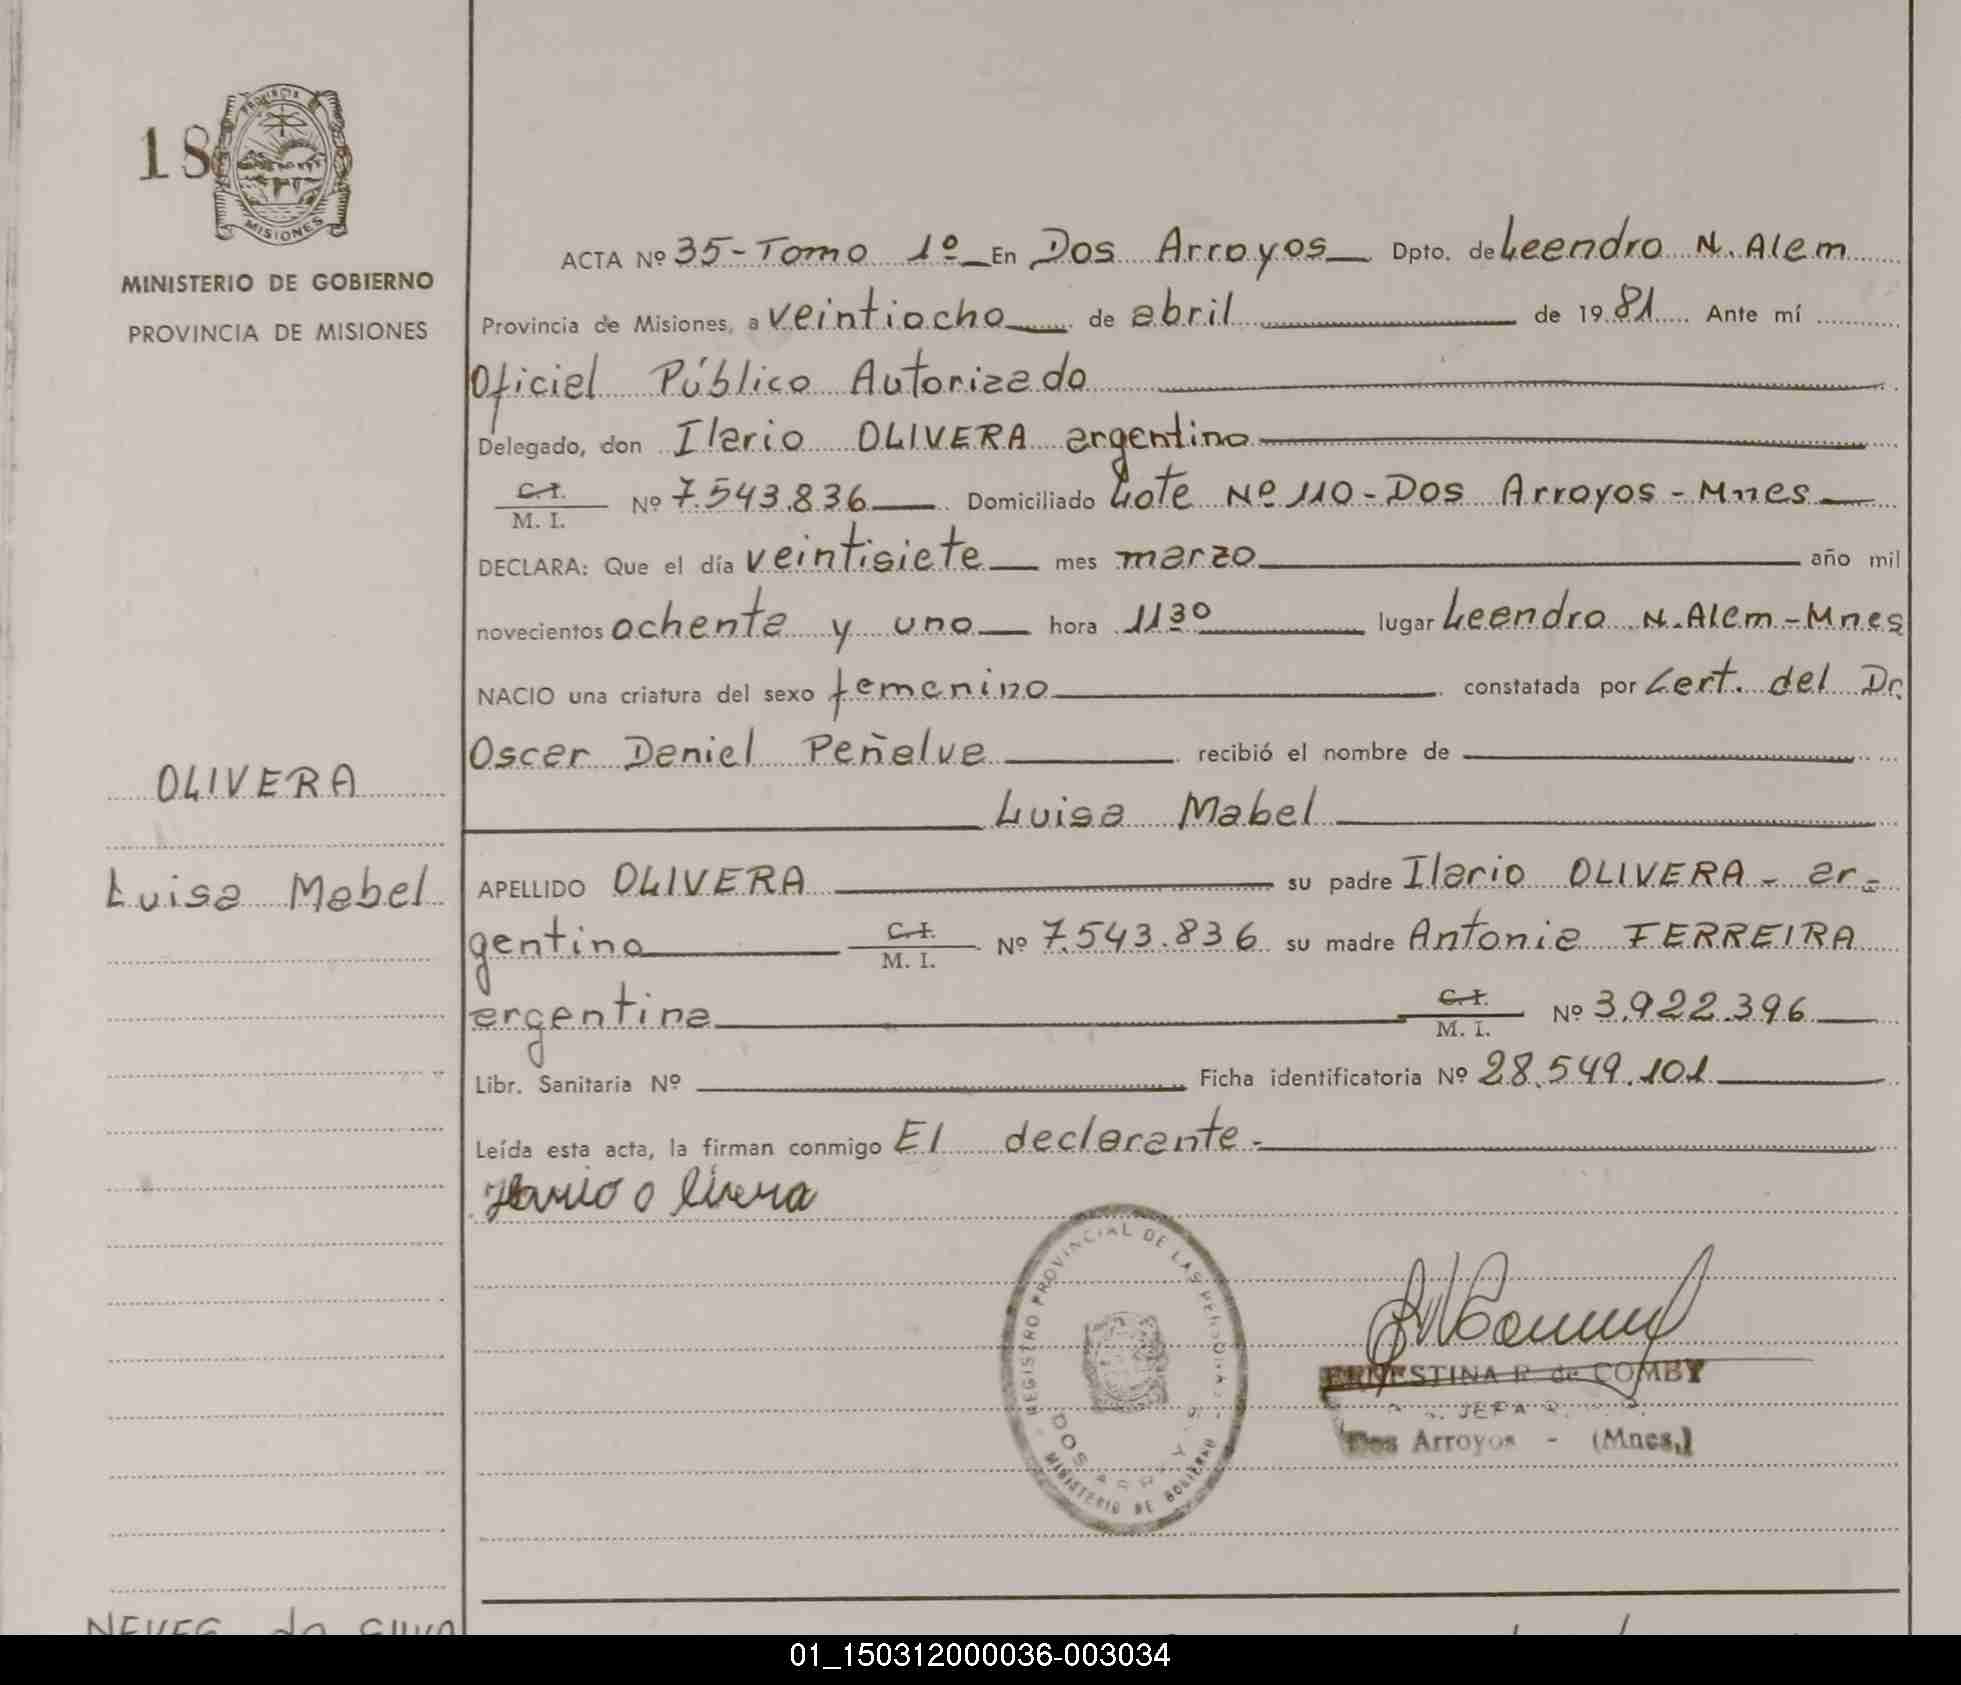 18
PROVINCIA
MISIONES
MINISTERIO DE GOBIERNO
PROVINCIA DE MISIONES
ACTA Nº 35 - Tomo 1º En Dos Arroyos Dpto. de Leandro N. Alem
Provincia de Misiones, a veintiocho de abril de 1981 Ante mí
Oficial Público Autorizado
Delegado, don Ilario OLIVERA argentino
C.I. M. I. Nº 7.543.836 Domiciliado Lote Nº 110 - Dos Arroyos - Mnes
DECLARA: Que el día veintisiete mes marzo año mil
novecientos ochenta y uno hora 11 30 lugar Leandro N. Alem - Mnes
NACIO una criatura del sexo femenino constatada por Cert. del Dr.
Oscar Daniel Peñalve recibió el nombre de
Luisa Mabel
OLIVERA
Luisa Mabel
APELLIDO OLIVERA su padre Ilario OLIVERA - ar-
gentino C.I. M. I. Nº 7.543.836 su madre Antonia FERREIRA
argentina C.I. M. I. Nº 3.922.396
Libr. Sanitaria Nº Ficha identificatoria Nº 28.549.101
Leída esta acta, la firman conmigo El declarante.-
Ilario Olivera
REGISTRO PROVINCIAL DE LAS PERSONAS
DOS ARROYOS
MINISTERIO DE GOBIERNO
ERNESTINA R. de COMBY
JEFA
Dos Arroyos - (Mnes.)
NEVES da SILVA
01_150312000036-003034